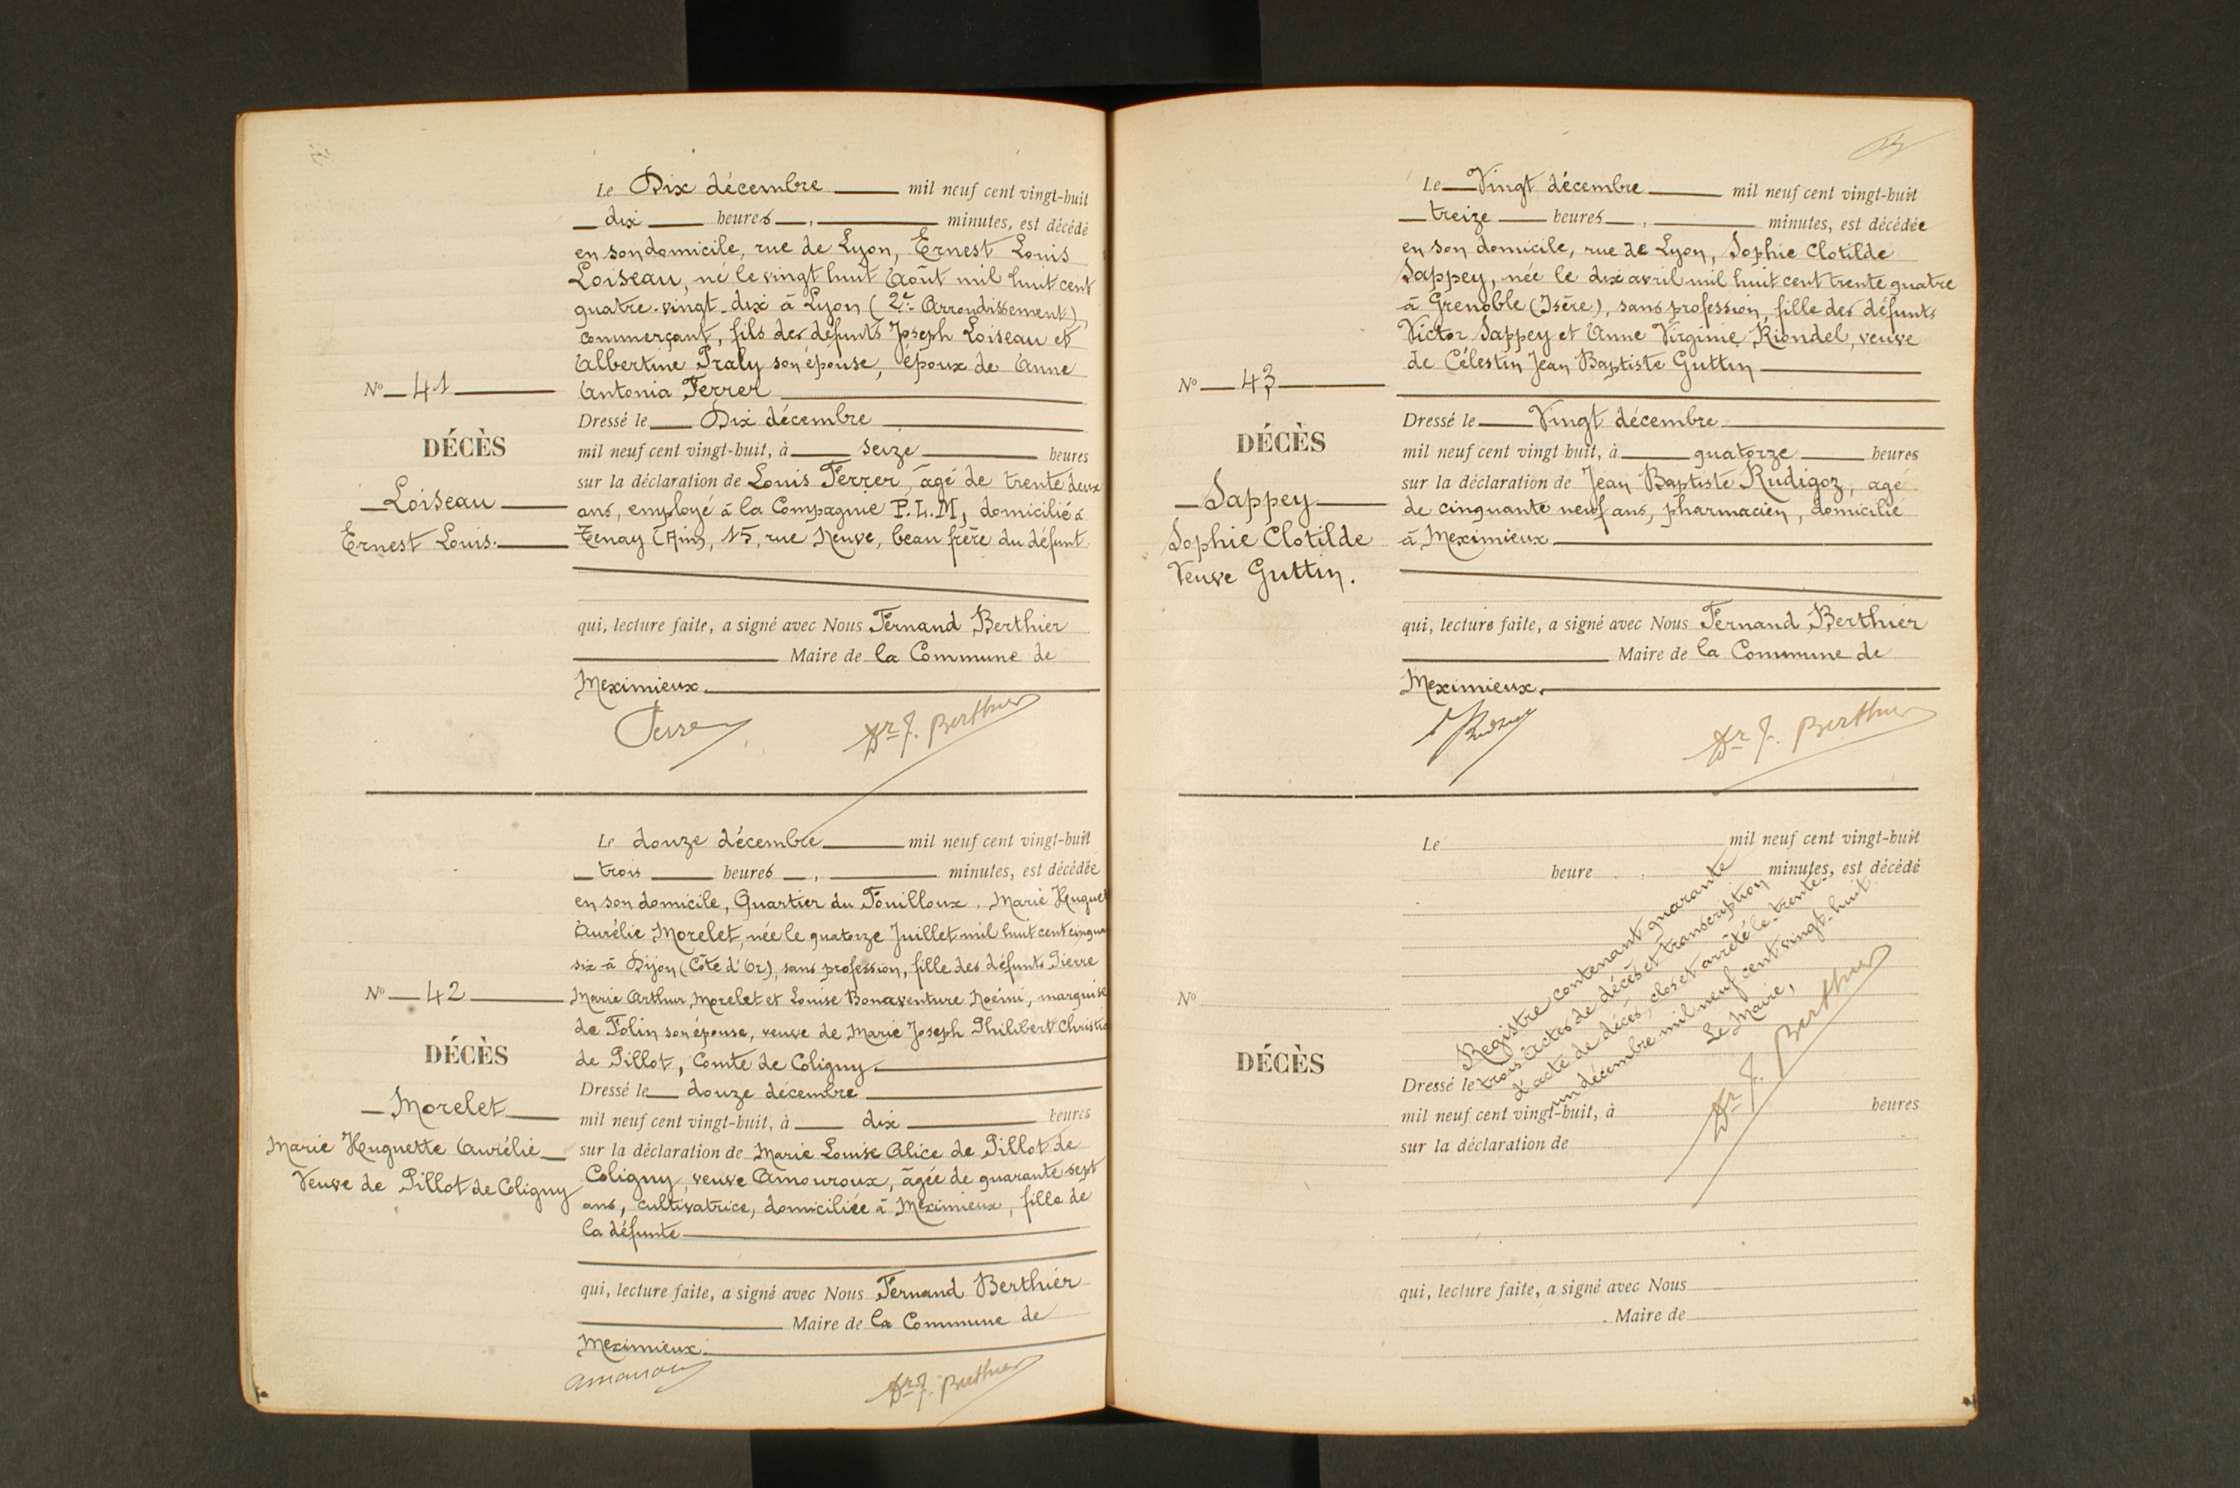 Le Dix décembre mil neuf cent vingt-huit
dix heures, minutes, est décédé
en son domicile, rue de Lyon, Ernest Louis
Loiseau, né le vingt huit Août mil huit cent
quatre-vingt-dix à Lyon (2e Arrondissement),
commerçant, fils des défunts Joseph Loiseau et
Albertine Praly son épouse, époux de Anne
Antonia Ferrer
Dressé le Dix décembre
mil neuf cent vingt-huit, à seize heures
sur la déclaration de Louis Ferrer, âgé de trente deux
ans, employé à la Compagnie P.L.M, domicilié à
Tenay (Ain), 15, rue Neuve, beau frère du défunt
qui, lecture faite, a signé avec Nous Fernand Berthier
Maire de la Commune de
Meximieux.
Dr F. Berthier
No 41
DÉCÈS
Loiseau
Ernest Louis.
Le douze décembre mil neuf cent vingt-huit
trois heures, minutes, est décédée
en son domicile, Quartier du Fouilloux. Marie Huguet
Aurélie Morelet, née le quatorze Juillet mil huit cent cinqua
six à Dijon (Côte d'Or), sans profession, fille des défunts Pierre
Marie Arthur Morelet et Louise Bonaventure Noémi, marquise
de Folin son épouse, veuve de Marie Joseph Philibert Christi
de Pillot, Comte de Coligny.
Dressé le douze décembre
mil neuf cent vingt-huit, à dix heures
sur la déclaration de Marie Louise Alice de Pillot de
Coligny, veuve Amouroux, âgée de quarante sept
ans, cultivatrice, domiciliée à Meximieux, fille de
la défunte
qui, lecture faite, a signé avec Nous Fernand Berthier
Maire de la Commune de
Meximieux.
Dr F. Berthier
No 42
DÉCÈS
Morelet
Marie Huguette Aurélie
Veuve de Pillot de Coligny
Le Vingt décembre mil neuf cent vingt-huit
treize heures, minutes, est décédée
en son domicile, rue de Lyon, Sophie Clotilde
Sappey, née le dix avril mil huit cent trente quatre
à Grenoble (Isère), sans profession, fille des défunts
Victor Sappey et Anne Virginie Riondel, veuve
de Célestin Jean Baptiste Guttin
Dressé le Vingt décembre
mil neuf cent vingt-huit, à quatorze heures
sur la déclaration de Jean Baptiste Rudigoz, agé
de cinquante neuf ans, pharmacien, domicilié
à Meximieux
qui, lecture faite, a signé avec Nous Fernand Berthier
Maire de la Commune de
Meximieux.
Dr F. Berthier
No 43
DÉCÈS
Sappey
Sophie Clotilde
Veuve Guttin.
Le mil neuf cent vingt-huit
heure, minutes, est décédé
No
DÉCÈS
Dressé le
mil neuf cent vingt-huit, à heures
sur la déclaration de
qui, lecture faite, a signé avec Nous
Maire de
Registre contenant quarante
trois actes de décès et transcription
d'acte de décès, clos et arrêté le trente-
un décembre mil neuf cent vingt-huit
Le Maire,
Dr F. Berthier